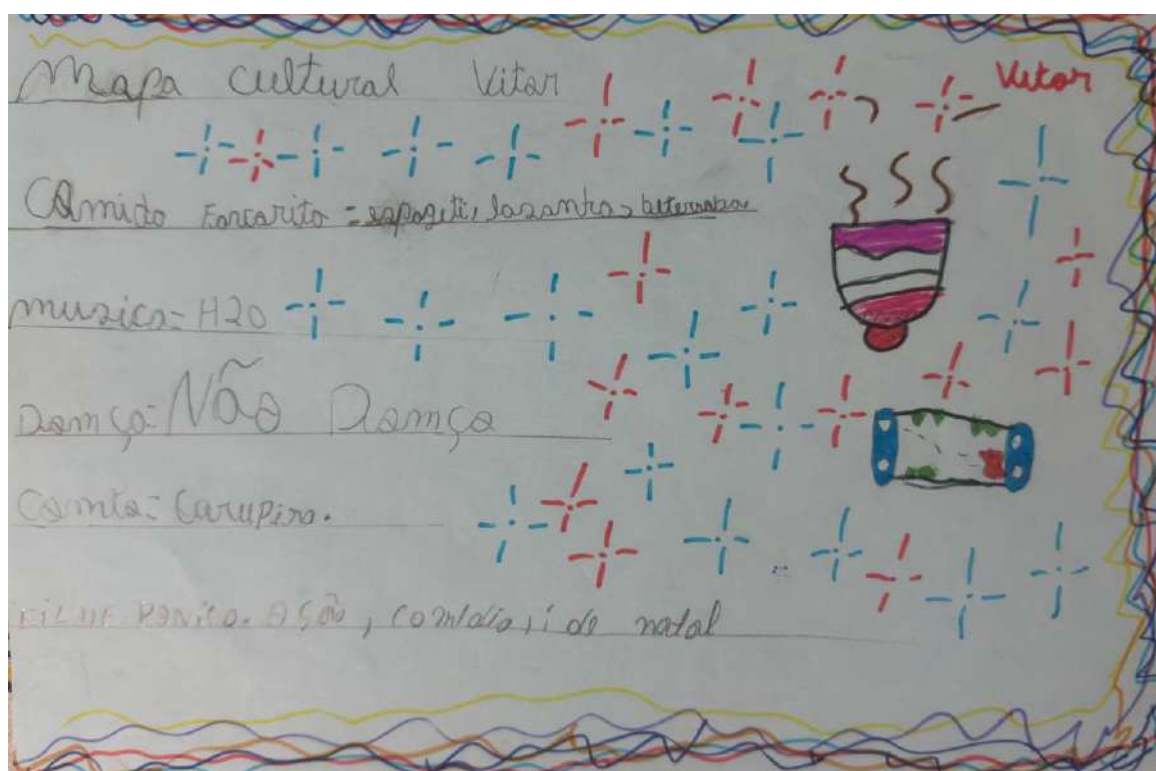 Mapa Cultural Vitor
Vitor
Comida Favarita = espageti, lazanha, beterraba
muzica = H2O
Dança = Não Dança
Conto = Curupira.
FILME Panico. Ação, comédia, i de natal